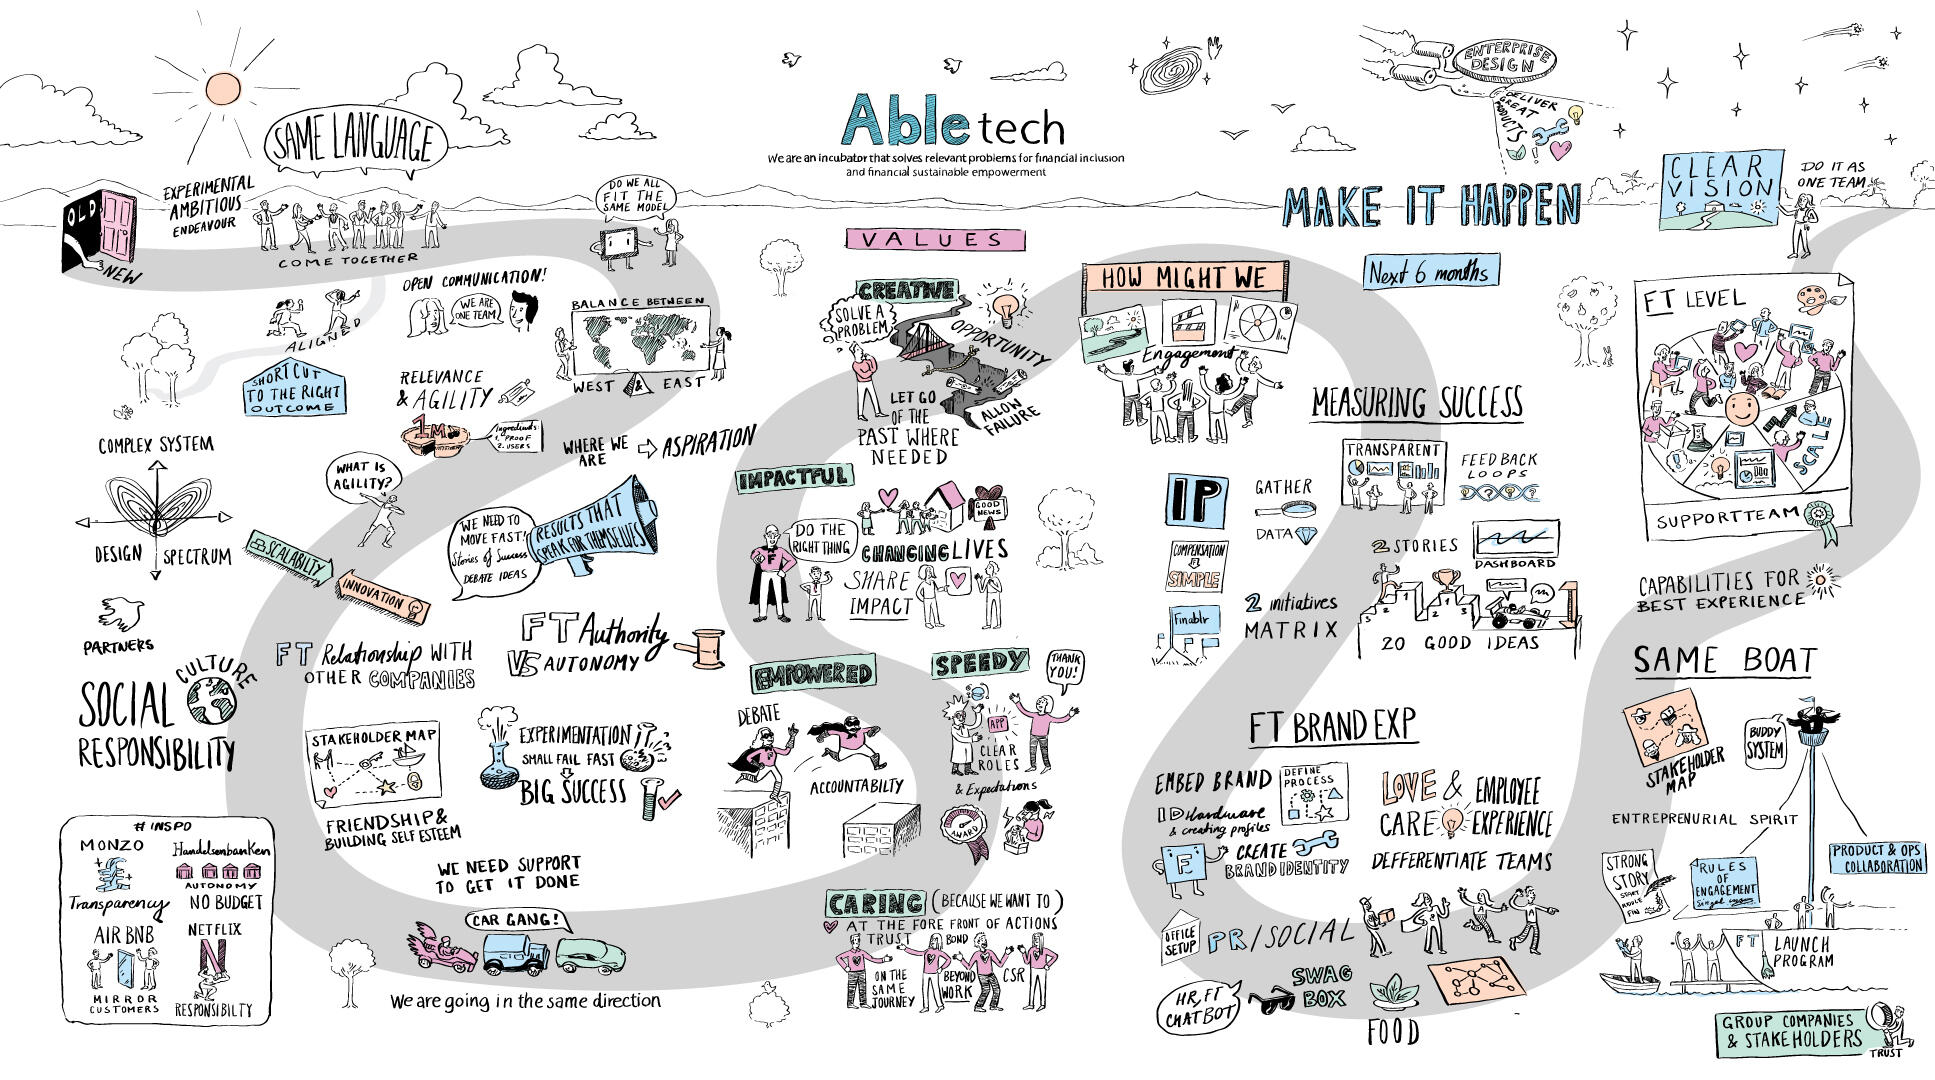 SAME LANGUAGE
OLD
NEW
EXPERIMENTAL
AMBITIOUS
ENDEAVOUR
COME TOGETHER
DO WE ALL
FIT THE
SAME MODEL
ALIGNED
OPEN COMMUNICATION!
WE ARE
ONE TEAM
BALANCE BETWEEN
WEST & EAST
SHORT CUT
TO THE RIGHT
OUTCOME
RELEVANCE
& AGILITY
1M
Ingredients:
1. PROOF
2. USERS
WHERE WE
ARE
ASPIRATION
COMPLEX SYSTEM
DESIGN SPECTRUM
WHAT IS
AGILITY?
SCALABILTY
INNOVATION
WE NEED TO
MOVE FAST!
Stories of Success
DEBATE IDEAS
RESULTS THAT
SPEAK FOR THEMSELVES
PARTNERS
FT Relationship WITH
OTHER COMPANIES
FT Authority
VS AUTONOMY
CULTURE
SOCIAL
RESPONSIBILITY
STAKEHOLDER MAP
FRIENDSHIP &
BUILDING SELF ESTEEM
EXPERIMENTATION
SMALL FAIL FAST
BIG SUCCESS
# INSPO
MONZO
Transparency
Handelsenbanken
AUTONOMY
NO BUDGET
AIR BNB
MIRROR
CUSTOMERS
NETFLIX
N
RESPONSIBILTY
WE NEED SUPPORT
TO GET IT DONE
CAR GANG!
We are going in the same direction
Able tech
We are an incubator that solves relevant problems for financial inclusion
and financial sustainable empowerment
VALUES
CREATIVE
SOLVE A
PROBLEM
OPPORTUNITY
LET GO
OF THE
PAST WHERE
NEEDED
ALLOW
FAILURE
IMPACTFUL
DO THE
RIGHT THING
F
GOOD
NEWS
CHANGING LIVES
SHARE
IMPACT
EMPOWERED
DEBATE
ACCOUNTABILTY
SPEEDY
THANK
YOU!
APP
CLEAR
ROLES
& Expectations
AWARD
CARING (BECAUSE WE WANT TO)
AT THE FORE FRONT OF ACTIONS
TRUST
ON THE
SAME
JOURNEY
BOND
BEYOND
WORK
CSR
ENTERPRISE
DESIGN
DELIVER
GREAT
PRODUCTS
!
MAKE IT HAPPEN
Next 6 months
HOW MIGHT WE
Engagement
MEASURING SUCCESS
TRANSPARENT
FEEDBACK
LOOPS
IP
GATHER
DATA
COMPENSATION
SIMPLE
Finablr
2 initiatives
MATRIX
2 STORIES
DASHBOARD
2 1 3
1
2
20 GOOD IDEAS
FT BRAND EXP
EMBED BRAND
ID Hardware
& creating profiles
DEFINE
PROCESS
F
CREATE
BRAND IDENTITY
LOVE &
CARE
EMPLOYEE
EXPERIENCE
DEFFERENTIATE TEAMS
OFFICE
SETUP
PR/SOCIAL
HR, FT
CHAT BOT
SWAG
BOX
FOOD
CLEAR
VISION
DO IT AS
ONE TEAM
FT LEVEL
SCALE
SUPPORT TEAM
CAPABILITIES FOR
BEST EXPERIENCE
SAME BOAT
STAKEHOLDER
MAP
BUDDY
SYSTEM
ENTREPRENURIAL SPIRIT
STRONG
STORY
START
MIDDLE
FIN
RULES
OF
ENGAGEMENT
PRODUCT & OPS
COLLABORATION
FT
LAUNCH
PROGRAM
GROUP COMPANIES
& STAKEHOLDERS
TRUST